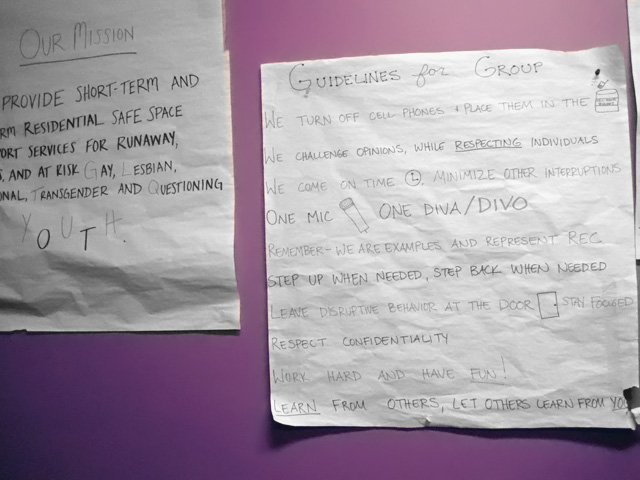 OUR MISSION
PROVIDE SHORT-TERM AND
RM RESIDENTIAL SAFE SPACE
ORT SERVICES FOR RUNAWAY,
S, AND AT RISK GAY, LESBIAN,
ONAL, TRANSGENDER AND QUESTIONING
YOUTH.
GUIDELINES for GROUP
WE TURN OFF CELL PHONES & PLACE THEM IN THE
WE CHALLENGE OPINIONS, WHILE RESPECTING INDIVIDUALS
WE COME ON TIME, MINIMIZE OTHER INTERRUPTIONS
ONE MIC ONE DIVA/DIVO
REMEMBER - WE ARE EXAMPLES AND REPRESENT REC
STEP UP WHEN NEEDED, STEP BACK WHEN NEEDED
LEAVE DISRUPTIVE BEHAVIOR AT THE DOOR STAY FOCUSED
RESPECT CONFIDENTIALITY
WORK HARD AND HAVE FUN!
LEARN FROM OTHERS, LET OTHERS LEARN FROM YO